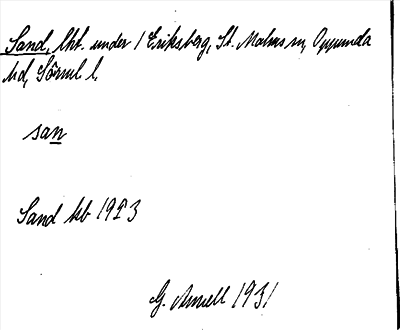 Sand, lht. under 1 Eriksberg, St. Malms sn, Oppunda
hd, Sörml l.
san
Sand kb 1923
G. Arnell 1931